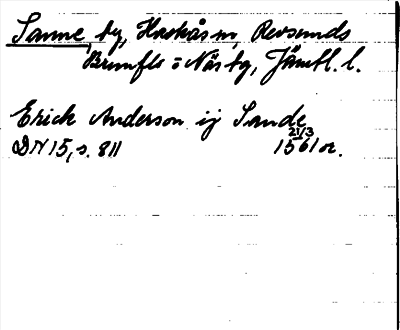 Sanne, by, Hackås sn, Revsunds
Brunflo o Näs tg, Jämtl. l.
Erick Anderson ij Sande
DN 15, s. 811 21/3 1561 or.